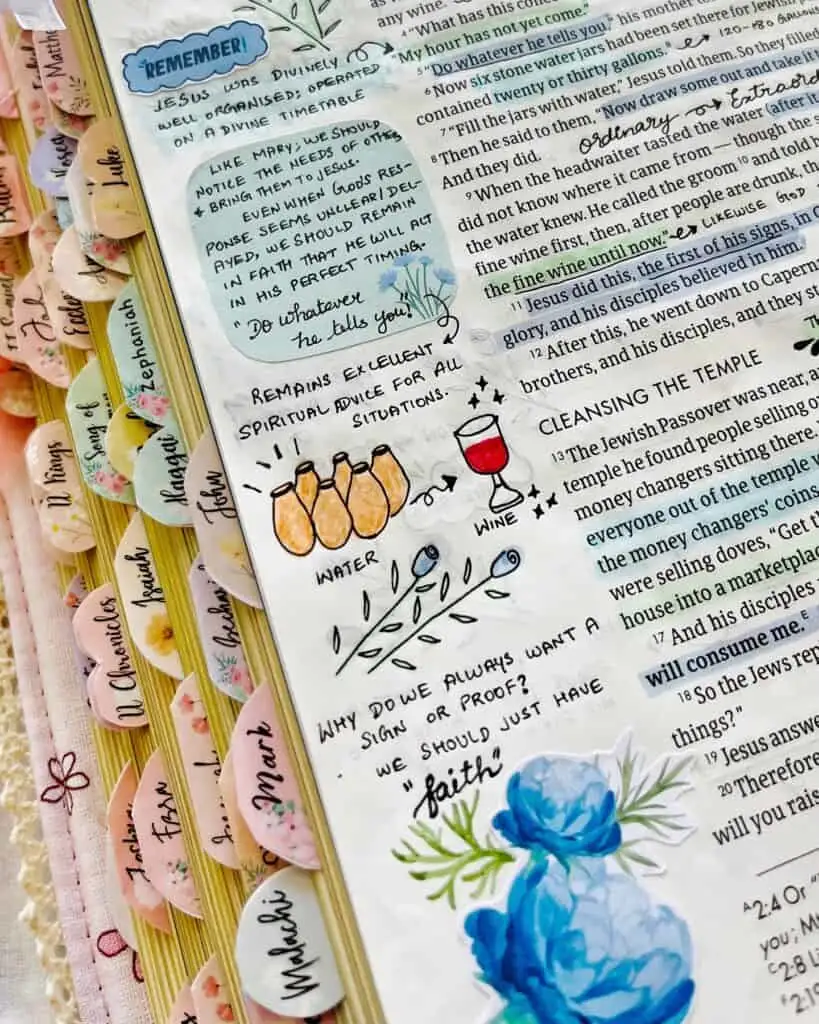 any wine.
4 "What has this con
My hour has not yet come."
5 "Do whatever he tells you," his mother to
6 Now six stone water jars had been set there for Jewish p
contained twenty or thirty gallons."
120-180 GALLONS
7 "Fill the jars with water," Jesus told them. So they filled
8 Then he said to them, "Now draw some out and take it t
And they did.
ordinary → Extraord
9 When the headwaiter tasted the water (after it
did not know where it came from — though the s
the water knew. He called the groom 10 and told h
fine wine first, then, after people are drunk, th
the fine wine until now."
LIKEWISE GOD
11 Jesus did this, the first of his signs, in C
glory, and his disciples believed in him.
12 After this, he went down to Capern
brothers, and his disciples, and they st
CLEANSING THE TEMPLE
13 The Jewish Passover was near, a
temple he found people selling o
money changers sitting there.
everyone out of the temple w
the money changers' coins
were selling doves, "Get th
house into a marketplac
17 And his disciples
will consume me. E
18 So the Jews rep
things?"
19 Jesus answe
20 Therefore
will you rais
A 2:4 Or "
you; M
C 2:8 Li
E 2:19
REMEMBER!
JESUS WAS DIVINELY
WELL ORGANISED; OPERATED
ON A DIVINE TIMETABLE
LIKE MARY; WE SHOULD
NOTICE THE NEEDS OF OTHERS
+ BRING THEM TO JESUS.
EVEN WHEN GOD'S RES-
PONSE SEEMS UNCLEAR/DEL-
AYED, WE SHOULD REMAIN
IN FAITH THAT HE WILL ACT
IN HIS PERFECT TIMING.
"Do whatever
he tells you!"
REMAINS EXCELLENT
SPIRITUAL ADVICE FOR ALL
SITUATIONS.
WATER
WINE
WHY DO WE ALWAYS WANT A
SIGN OR PROOF?
WE SHOULD JUST HAVE
"faith"
Matthe
Luke
Zephaniah
Song of
Haggai
II Kings
John
Isaiah
II Chronicles
Mark
Ezra
Joshua
Malachi